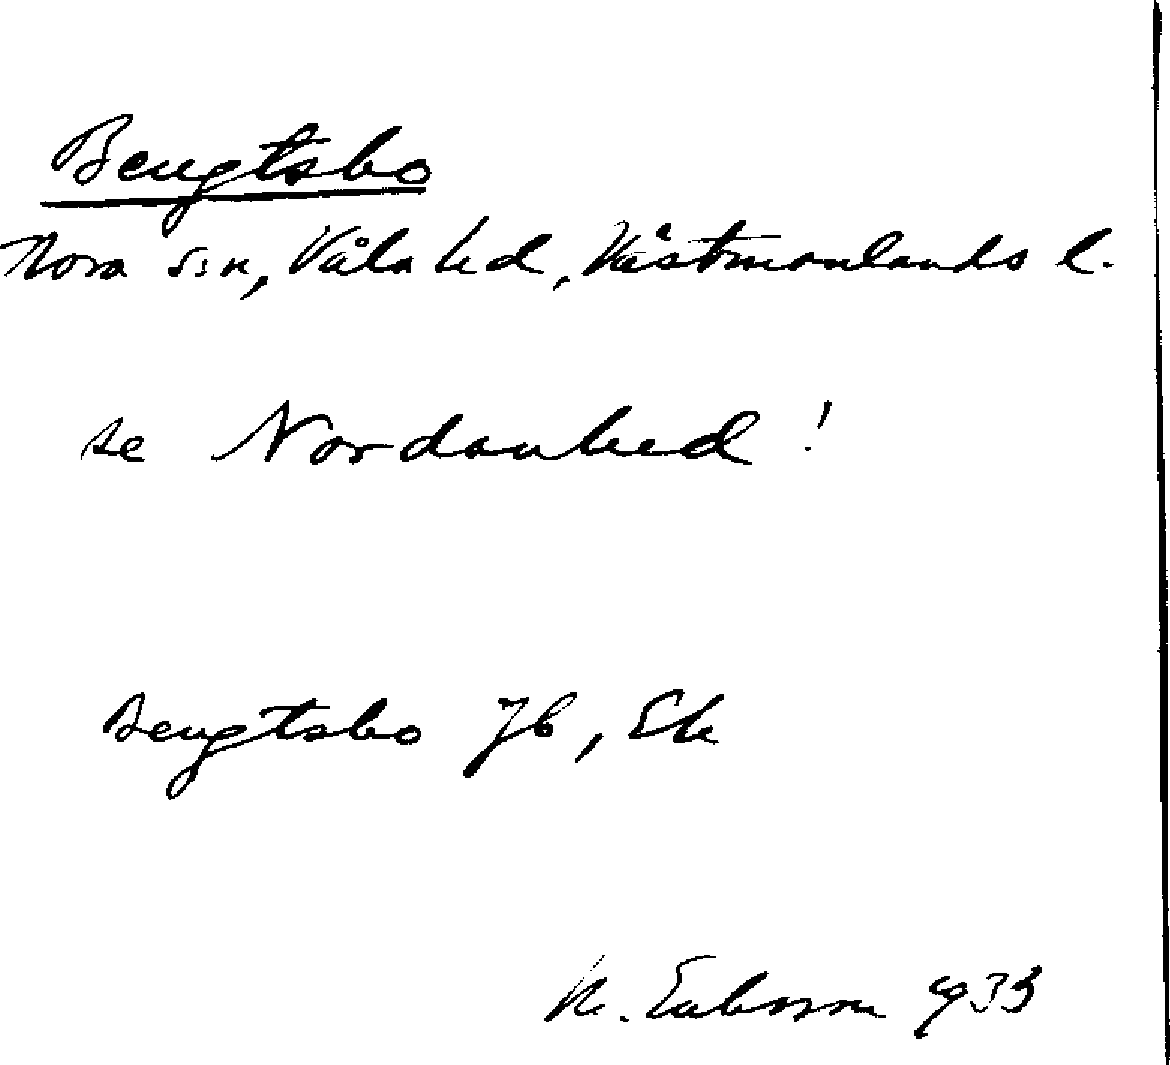 Bengtsbo
Nora sn, Våla hd, Västmanlands l.
se Nordanhed!
Bengtsbo Jb, Ek
1933